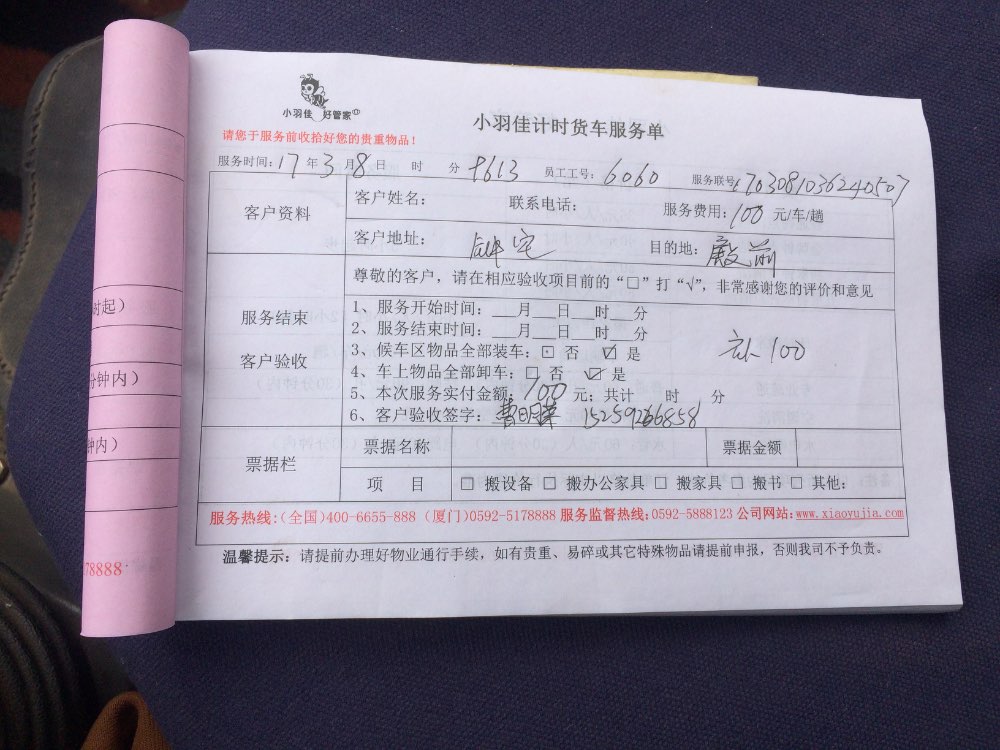 小羽佳 好管家
小羽佳计时货车服务单
请您于服务前收拾好您的贵重物品！
服务时间：17年3月8日 时 分 员工工号：6060 服务联号：
客户资料
客户姓名： 联系电话： 服务费用：100 元/车/趟
客户地址： 目的地：殿前
尊敬的客户，请在相应验收项目前的“□”打“√”，非常感谢您的评价和意见
服务结束
客户验收
1、服务开始时间：___月___日___时___分
2、服务结束时间：___月___日___时___分
3、候车区物品全部装车：□ 否 ☑ 是
4、车上物品全部卸车：□ 否 ☑ 是
5、本次服务实付金额：100 元；共计 时 分
6、客户验收签字： 15259266858
补100
票据栏
票据名称 票据金额
项 目 □ 搬设备 □ 搬办公家具 □ 搬家具 □ 搬书 □ 其他：
服务热线：(全国)400-6655-888 (厦门)0592-5178888 服务监督热线：0592-5888123 公司网站：www.xiaoyujia.com
温馨提示：请提前办理好物业通行手续，如有贵重、易碎或其它特殊物品请提前申报，否则我司不予负责。
时起）
分钟内）
钟内）
78888